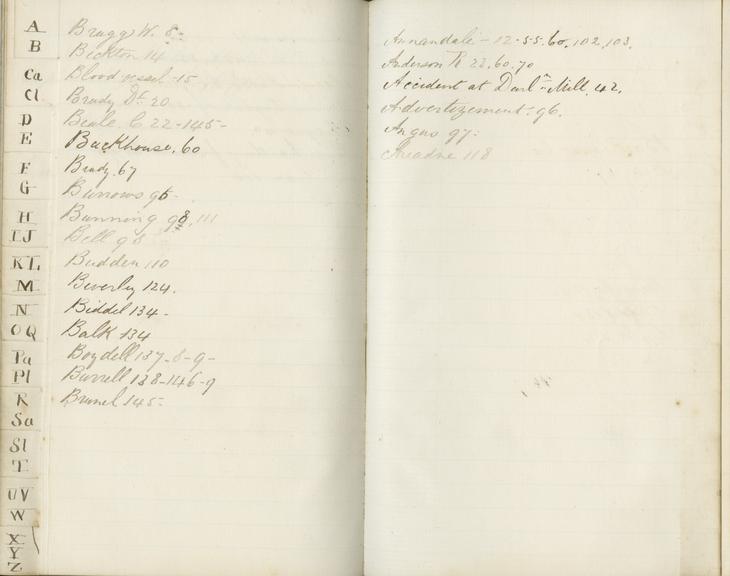 A
B
Ca
Cl
D
E
F
G
H
IJ
KL
M
N
OQ
Pa
Pl
R
Sa
Sl
T
UV
W
X
Y
Z
Bragg W. 8-
Beckton 14
Blood vessel-15
Brady Dr. 20
Beale C 22-145-
Backhouse. 60
Brady. 67
Burrows 96-
Bunning 98, 111
Bell 98
Budden 110
Beverley 124.
Biddel 134-
Balk 134
Boydell 137-8-9-
Burrell 138-146-9
Brunel 145-
Annandale-12-55.60.102.103.
Anderson R 22.60.70
Accident at Mill. 42.
Advertizement: 96.
Angus 97:
Ariadne 118